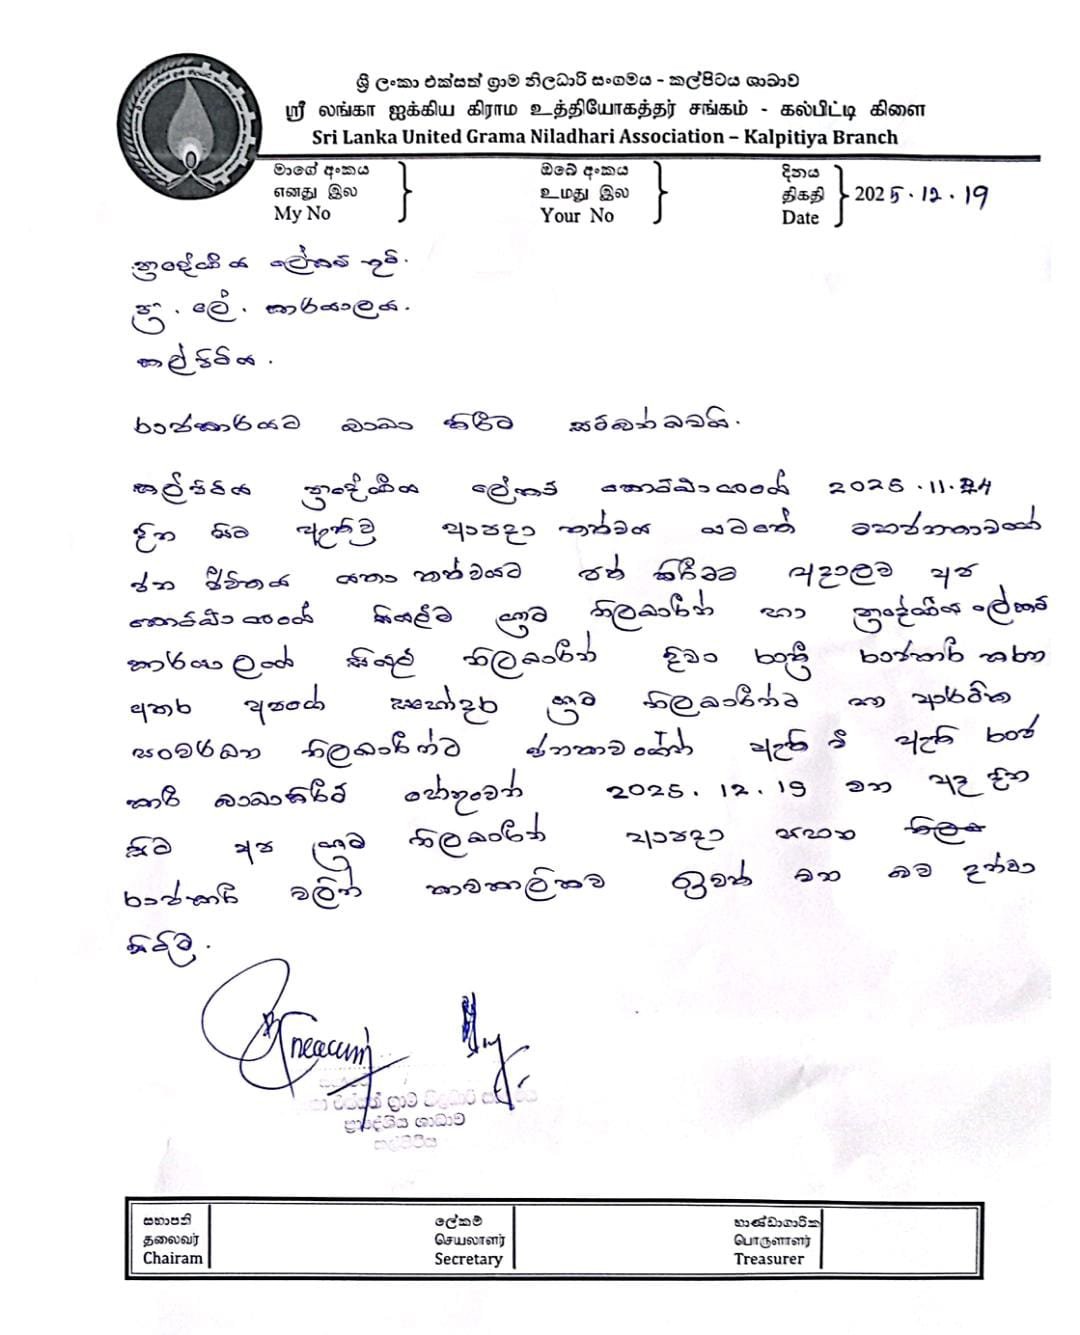 ශ්‍රී ලංකා එක්සත් ග්‍රාම නිලධාරි සංගමය - කල්පිටිය ශාඛාව
ஸ்ரீ லங்கா ஐக்கிய கிராம உத்தியோகத்தர் சங்கம் - கல்பிட்டி கிளை
Sri Lanka United Grama Niladhari Association – Kalpitiya Branch
මාගේ අංකය
எனது இல
My No
ඔබේ අංකය
உமது இல
Your No
දිනය
திகதி
Date
2025.12.19
ප්‍රාදේශීය ලේකම් තුමි.
ප්‍රා. ලේ. කාර්යාලය.
කල්පිටිය.
රාජකාරියට බාධා කිරීම සම්බන්ධවයි.
කල්පිටිය ප්‍රාදේශීය ලේකම් කොට්ඨාසයේ 2025.11.24
දින සිට ඇතිවූ ආපදා තත්වය යටතේ මෙජනතාවගේ
ජන ජීවිතය යතා තත්වයට පත් කිරීමට අදාලව අප
කොට්ඨාසයේ සියළුම ග්‍රාම නිලධාරීන් හා ප්‍රාදේශීය ලේකම්
කාර්යාලයේ සියළු නිලධාරීන් දිවා රාත්‍රී රාජකාරී කරන
අතර අපගේ සහෝදර ග්‍රාම නිලධාරීන්ට සහ ආර්ථික
සංවර්ධන නිලධාරීන්ට ජනතාවගේන් ඇති වී ඇති රාජ
කාරී බාධාකිරීම් හේතුවෙන් 2025.12.19 වන අද දින
සිට අප ග්‍රාම නිලධාරීන් ආපදා සහන
රාජකාරී වලින් තාවකාලිකව ඉවත් වන බව දන්වා
සිටිමු.
එක්සත් ග්‍රාම නිලධාරි
ප්‍රාදේශීය ශාඛාව
කල්පිටිය
සභාපති
தலைவர்
Chairam
ලේකම්
செயலாளர்
Secretary
භාණ්ඩාගාරික
பொருளாளர்
Treasurer